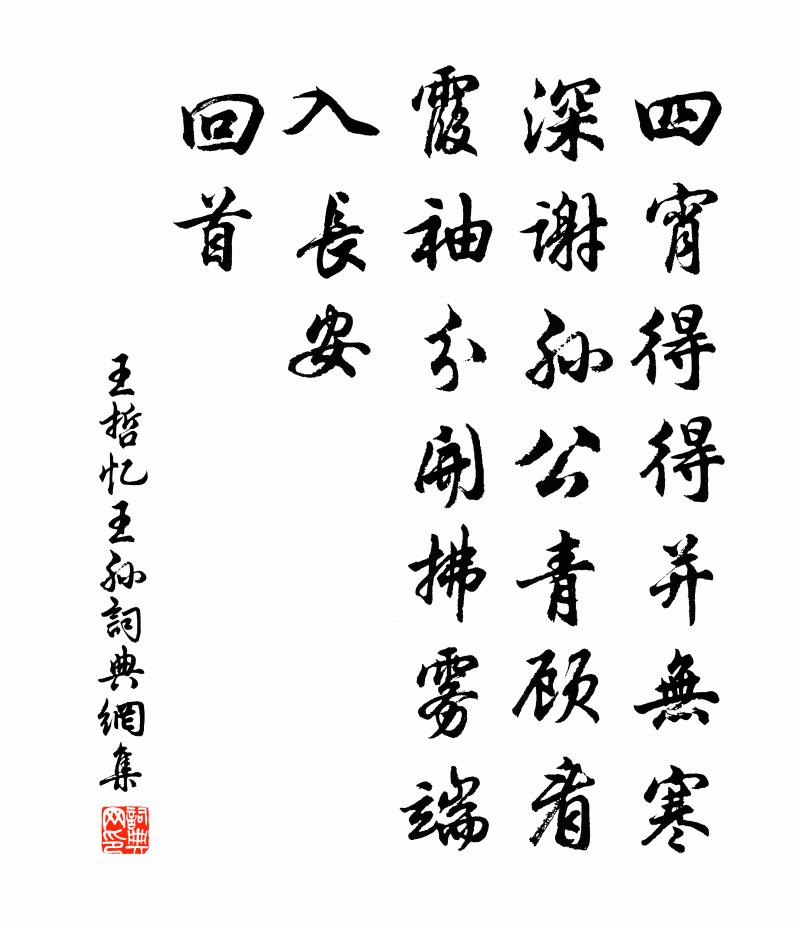 四宵得得并無寒
深谢孙公青顾看
霞袖分開拂雾端
入長安
回首
王哲忆王孙詞典網集
詞典网印